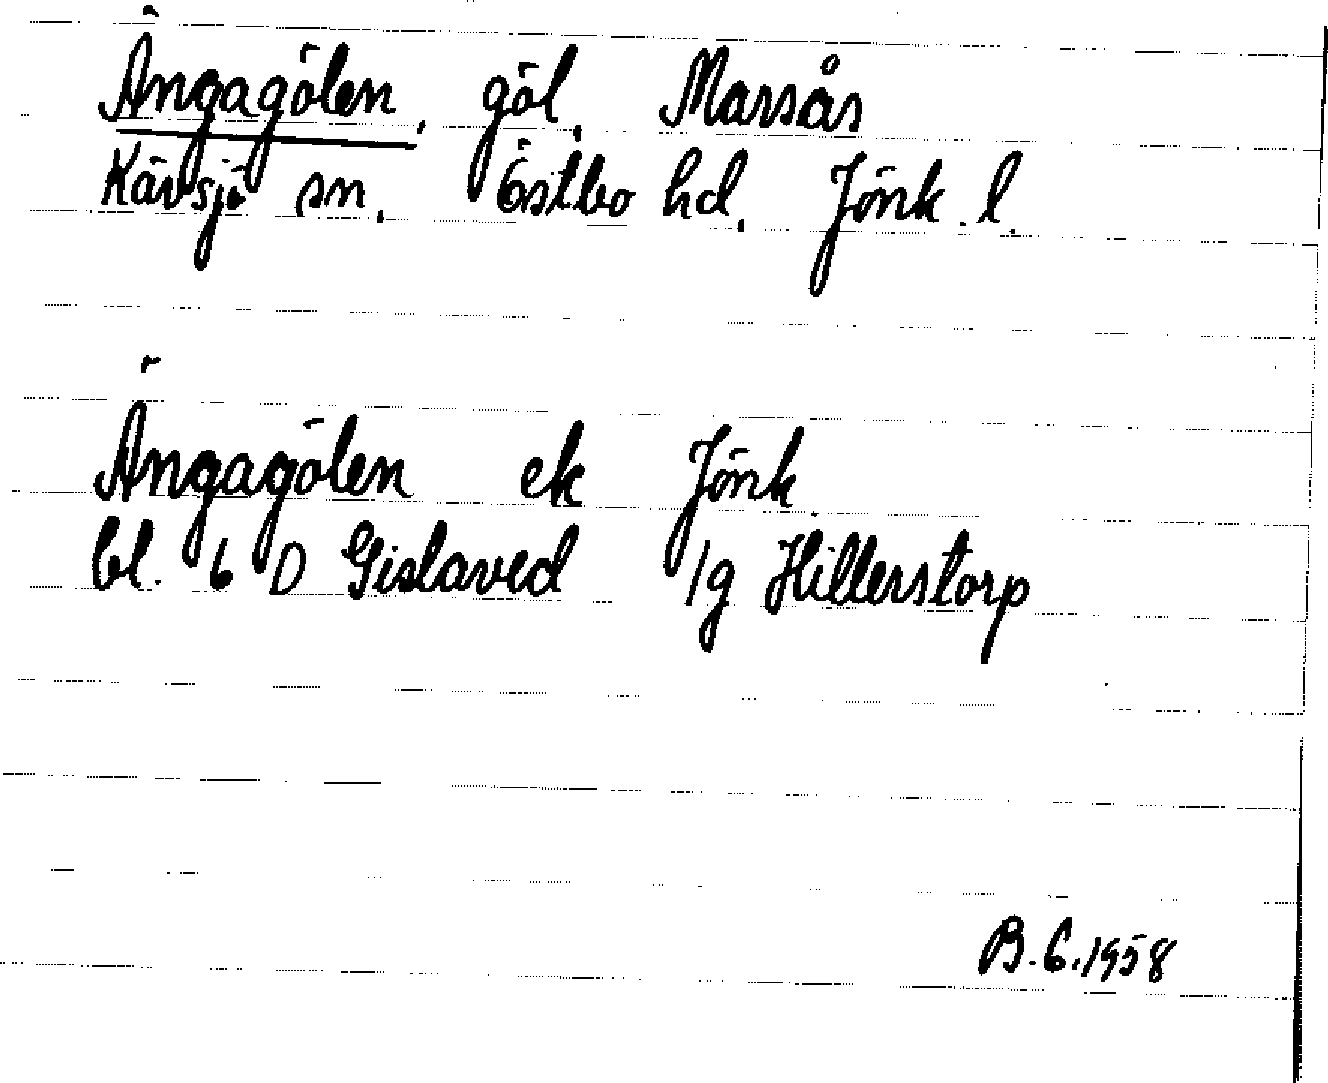 Ängagölen, göl, Marsås
Kävsjö sn, Östbo hd, Jönk. l.
Ängagölen ek Jönk.
bl. 6 D Gislaved 1g Hillerstorp
B.G.1958